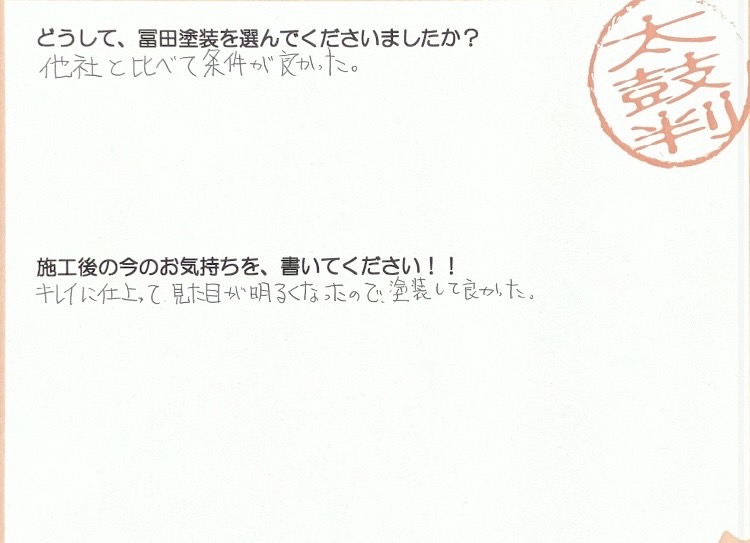 どうして、冨田塗装を選んでくださいましたか？
他社と比べて条件が良かった。
太鼓判
施工後の今のお気持ちを、書いてください！！
キレイに仕上って、見た目が明るくなったので、塗装して良かった。